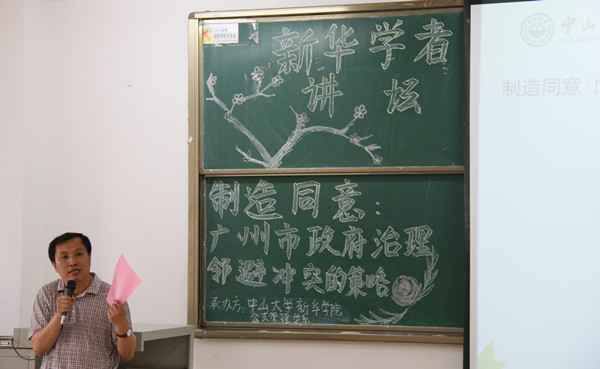 新华学者
讲坛
制造同意：
广州市政府治理
邻避冲突的策略
承办方：中山大学新华学院
公共管理学系
中山
制造同意:广